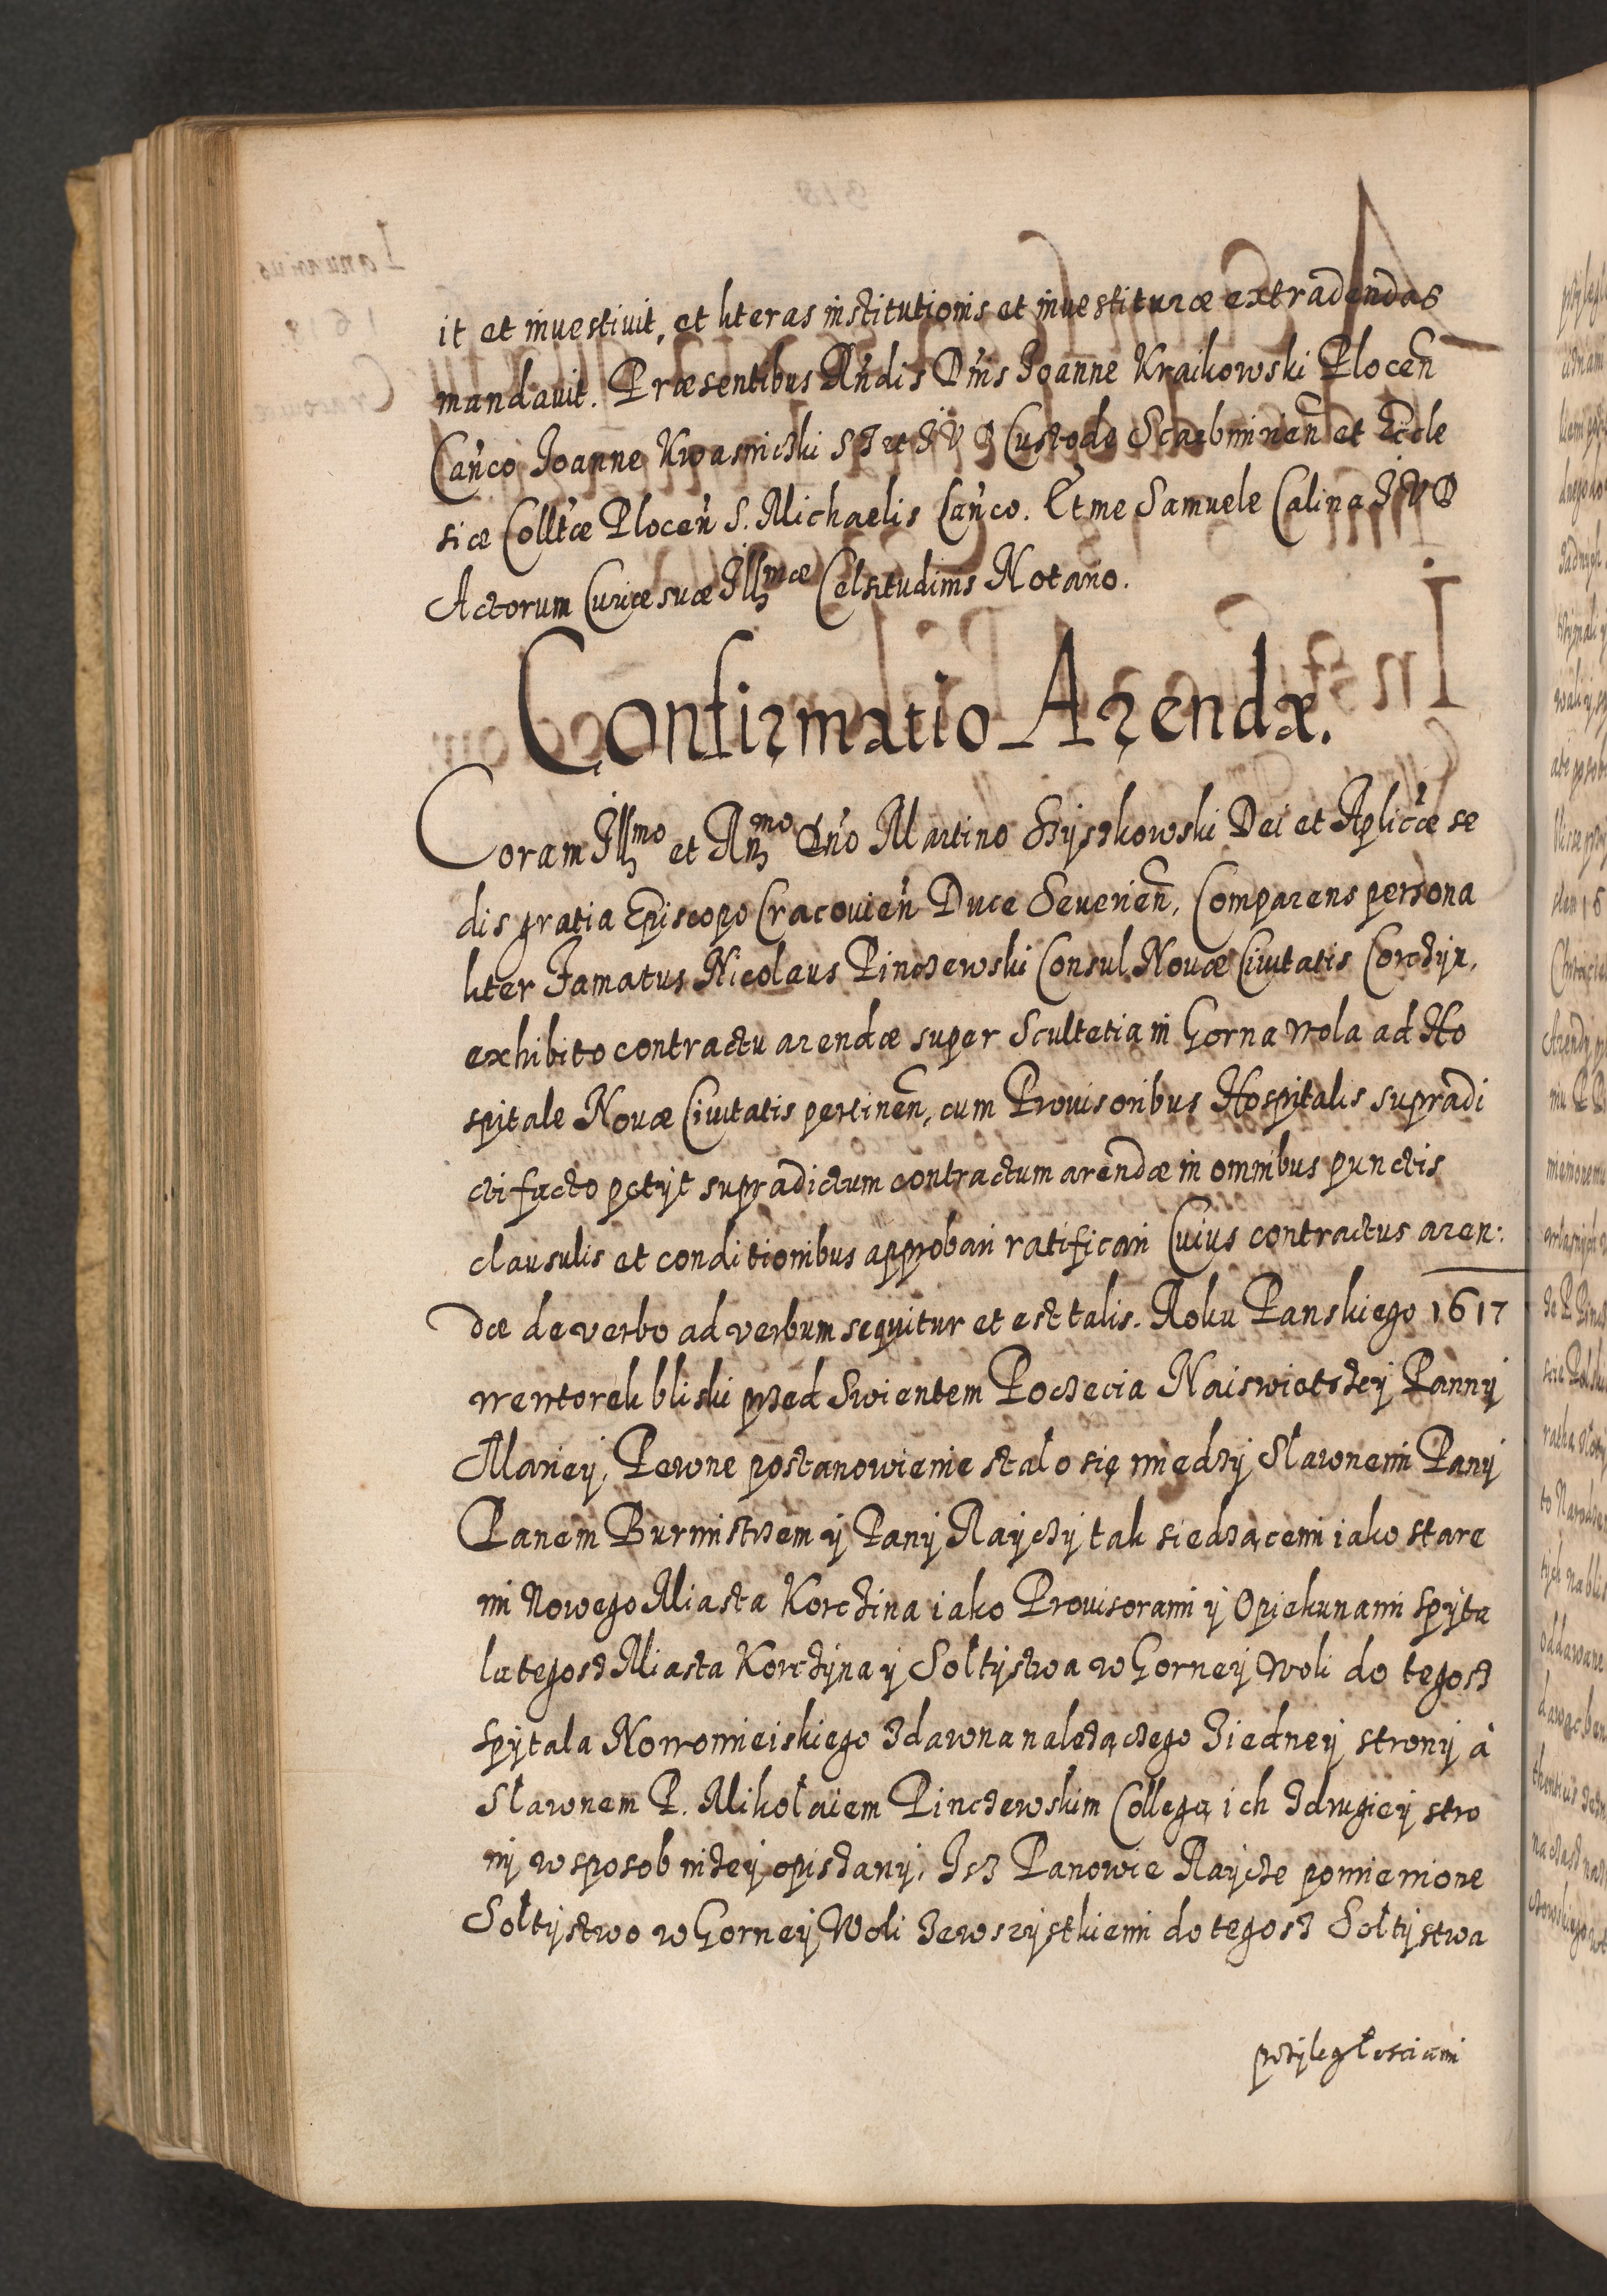 it et inuestiuit, et literas institutionis et inuestituræ extradendas
mandauit. Præsentibus Rńdis Dńis Joanne Kraikowski Plocen̄
Cań̄co Joanne Kwasnicski S T et J V D Custode Scarbimirien̄ et Eccle
siæ Colltæ Plocen̄ S. Michaelis Cań̄co. Et me Samuele Calina J V D
Actorum Curiæ suæ Illmæ Celsitudinis Notario.
Confirmatio Arendæ.
Coram Illmo et Rńmo Dńo Martino Szyszkowski Dei et Aplicæ se
dis gratia Episcopo Cracouien̄ Duce Seuerien̄, Comparens persona
liter Famatus Nicolaus Pinczewski Consul Nouæ Ciuitatis Corczyn,
exhibito contractu arendæ super Scultetia in Gorna Wola ad Ho
spitale Nouæ Ciuitatis pertinen̄, cum Prouisoribus Hospitalis supradi
cti facto petyt supradictum contractum arendæ in omnibus punctis
clausulis et conditionibus approbari ratificari Cuius contractus aren:
dæ de verbo ad verbum sequitur et est talis. Roku Panskiego 1617
wewtorek bliski przed Swientem Poczecia Naiswietszey Panny
Mariey, Pewne postanowienie stalo się miedzy Sławnemi Pany
Panem Burmistrzem y Pany Rayczy tak siedzącemi iako stare
mi Nowego Miasta Korczina iako Prouisorami y Opiekunami spyta
la tegosz Miasta Korczyna y Soltystwa w Gorney Woli do tegosz
spytala Nowomieiskiego zdawna nalezączego ziedney strony à
Sławnem P. Mikołaiem Pinczewskim Collegą ich zdrugiey stro
ny wsposob nizey opiszany, Isz Panowie Raycze pomienione
Sołtystwo w Gorney Woli zewszystkiemi do tegosz Sołtystwa
przyległosciami